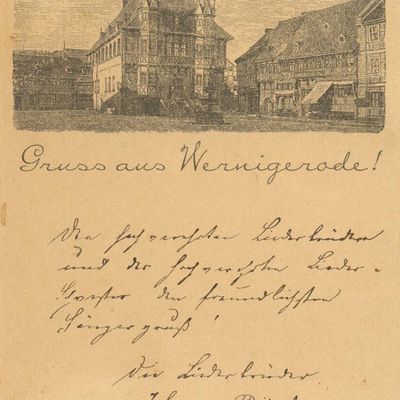 Gruss aus Wernigerode!
Den hochverehrten Liederbrüdern
und der hochverehrten Lieder-
schwester den freundlichsten
Sängergruß!
Die Liederbrüder